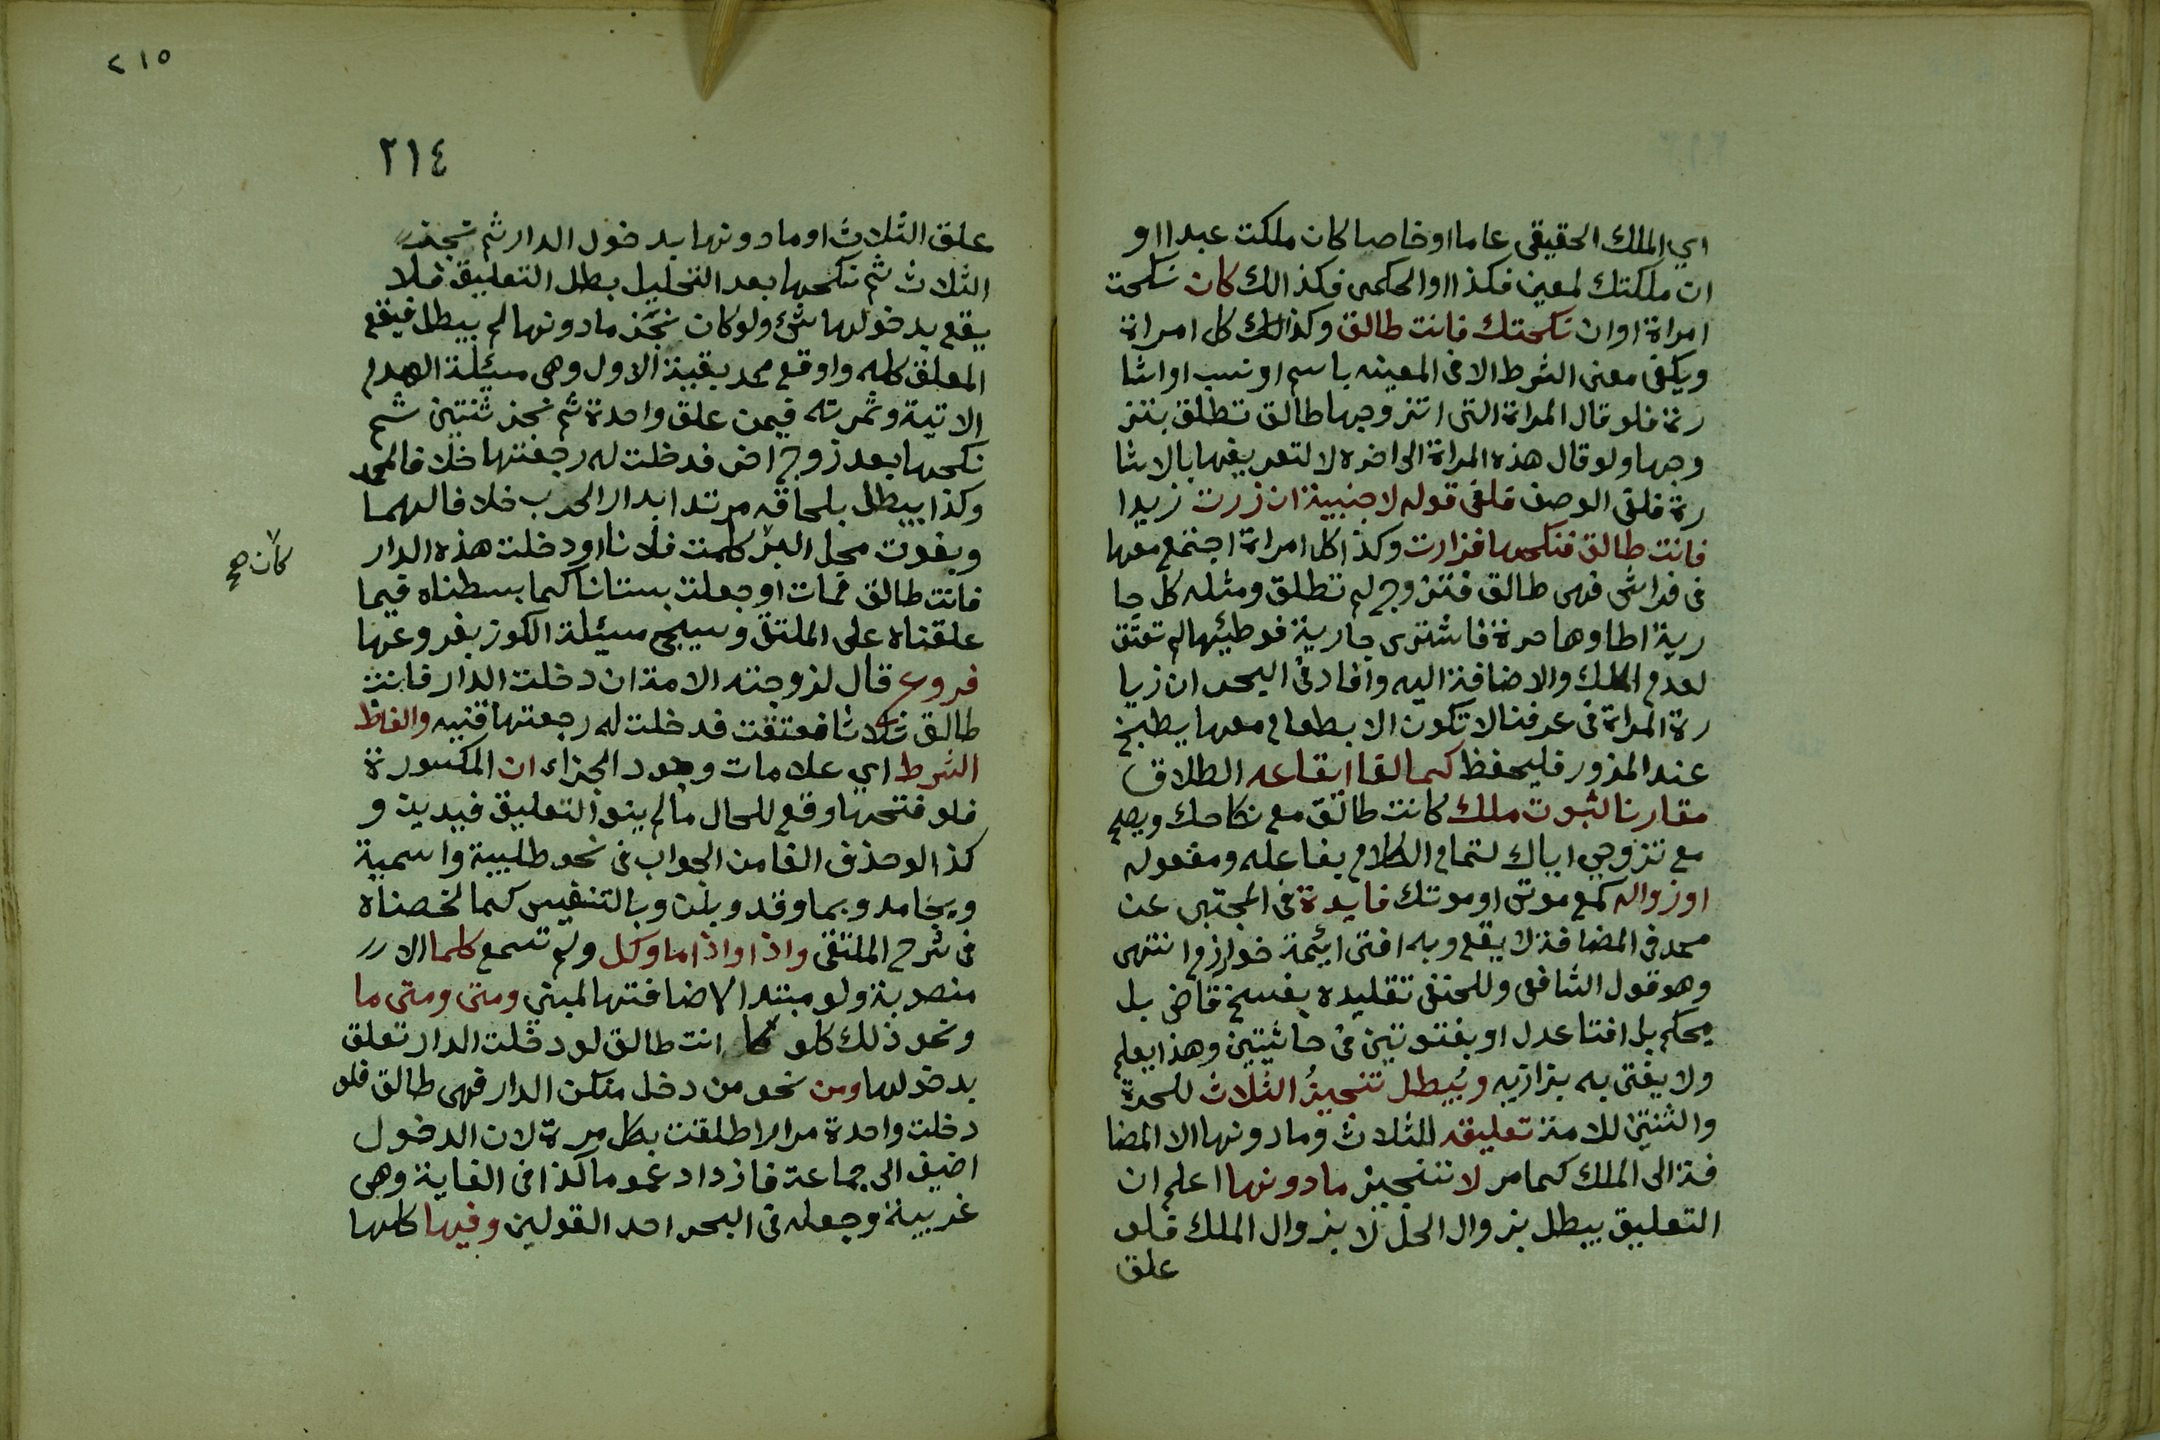 اي الملك الحقيقي عاما او خاصا كان ملكت عبدا او
ان ملكتك لمعين فكذا او الحكمي فكذالك كان نكحت
امراة او ان نكحتك فانت طالق وكذالك كل امراة
ويكفي معنى الشرط الا في المعينه باسم او نسب او اشا
رة فلو قال المراة التي اتزوجها طالق تطلق بتز
وجها ولو قال هذه المراة الى اخره لا لتعريفها بالاشا
رة فلغى الوصف فلغى قوله لاجنبية ان زرت زيدا
فانت طالق فنكحها فزارت وكذا كل امراة اجتمع معها
في فراشي فهي طالق فتزوج لم تطلق ومثله كل جا
رية اطاوها حرة فاشترى جارية فوطئها لم تعتق
لعدم الملك والاضافة اليه وافاد في البحر ان زيا
رة المراة في عرفنا لا تكون الا بطعام معها يطبخ
عند المزور فليحفظ كما لغا ايقاعه الطلاق
مقارنا لثبوت ملك كانت طالق مع نكاحك ويصح
مع تزوجي اياك لتمام الكلام بفاعله ومفعوله
او زواله كمع موتي او موتك فايدة في المجتبى عن
محمد في المضافة لا يقع وبه افتى ايئمة خوارزم انتهى
وهو قول الشافعي وللحنفي تقليده بفسخ قاض بل
محكم بل افتا عدل او بفتوتين في حاثتين وهذا يعلم
ولا يفتى به بزازيه ويبطل تنجيز الثلاث للحرة
والثنتين للامة تعليقه للثلاث وما دونها الا المضا
فة الى الملك كما مر لا تنجيز ما دونها اعلم ان
التعليق يبطل بزوال الحل لا بزوال الملك فلو
علق
٢١٥
٢١٤
علق الثلاث او ما دونها بدخول الدار ثم نجز
الثلاث ثم نكحها بعد التحليل بطل التعليق فلا
يقع بدخولها شئ ولو كان نجز ما دونها لم يبطل فيقع
المعلق كله واوقع محمد بقية الاول وهي مسئلة الهدم
الاتية وثمرته فيمن علق واحدة ثم نجز ثنتين ثم
نكحها بعد زوج اخر فدخلت له رجعتها خلافا لمحمد
وكذا يبطل بلحاقه مرتدا بدار الحرب خلافا لهما
وبفوت محل البر كلمت فلانا او دخلت هذه الدار
كان صح
فانت طالق فمات او جعلت بستانا كما بسطناه فيما
علقناه على الملتقى وسيجي مسئلة الكوز بفروعها
فروع قال لزوجته الامة ان دخلت الدار فانت
طالق ثلاثا فعتقت فدخلت له رجعتها قنيه والفاظ
الشرط اي علامات وجود الجزاء ان المكسورة
فلو فتحها وقع للحال ما لم ينو التعليق فيدين و
كذا لو حذف الفا من الجواب في نحو طلبية واسمية
وبجامد وبما وقد وبلن وبالتنفيس كما لخصناه
في شرح الملتقى واذا واذاما وكل ولم تسمع كلما الا
منصوبة ولو مبتدا لاضافتها لمبني ومتى ومتى ما
ونحو ذلك كلو كا انت طالق لو دخلت الدار تعلق
بدخولها ومن نحو من دخل منكن الدار فهي طالق فلو
دخلت واحدة مرارا طلقت بكل مرة لان الدخول
اضيف الى جماعة فازداد عموما كذا في الغاية وهي
غريبة وجعله في البحر احد القولين وفيها كلها